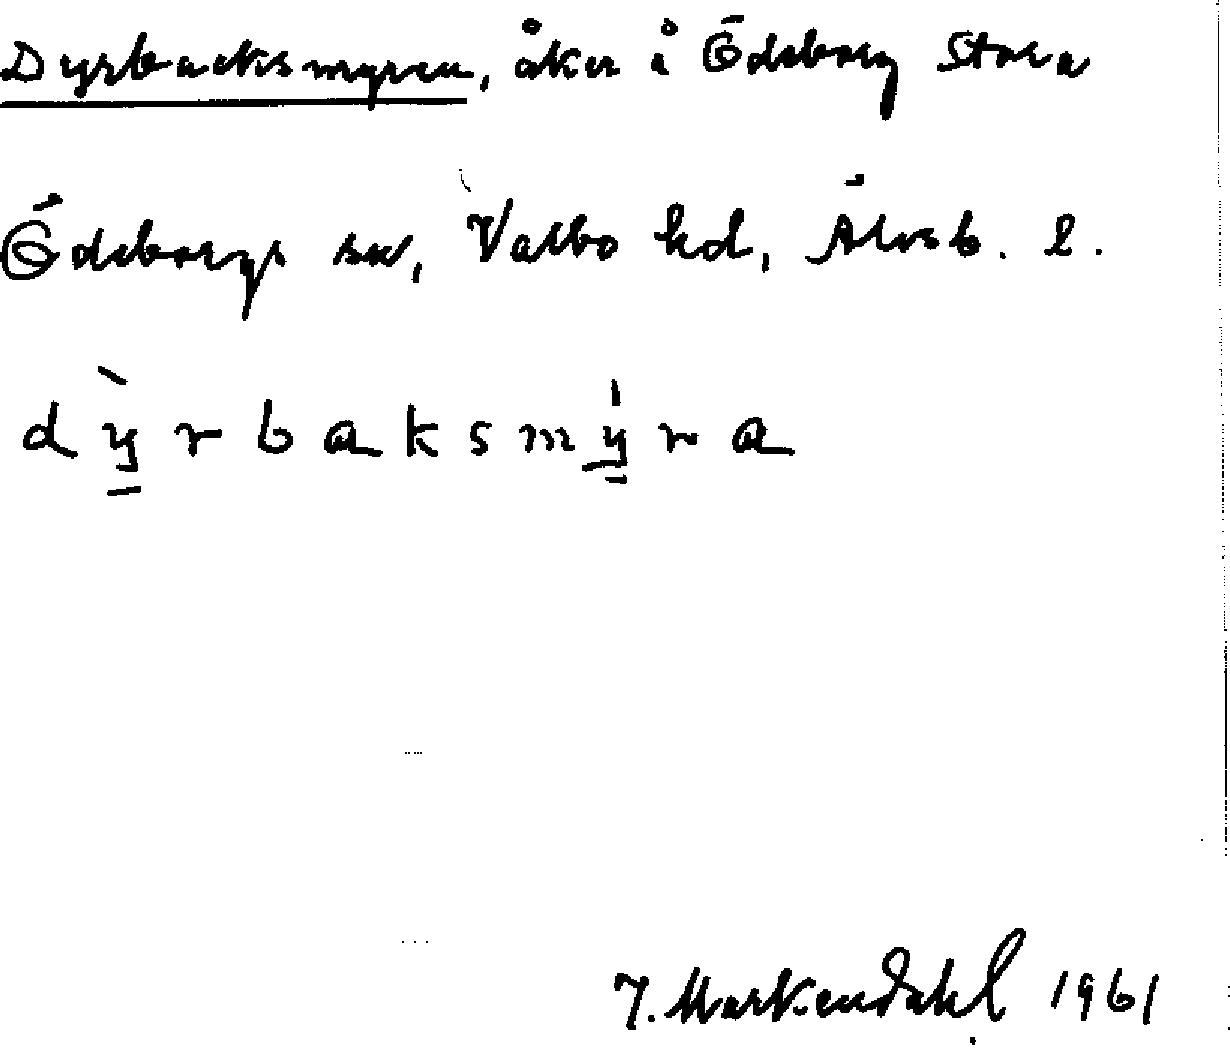 Dyrbacksmyren, åker å Ödeborg Stora
Ödeborgs sn, Valbo hd, Älvsb. l.
dỳ̱rbaksmý̱ra
J. Markendahl 1961